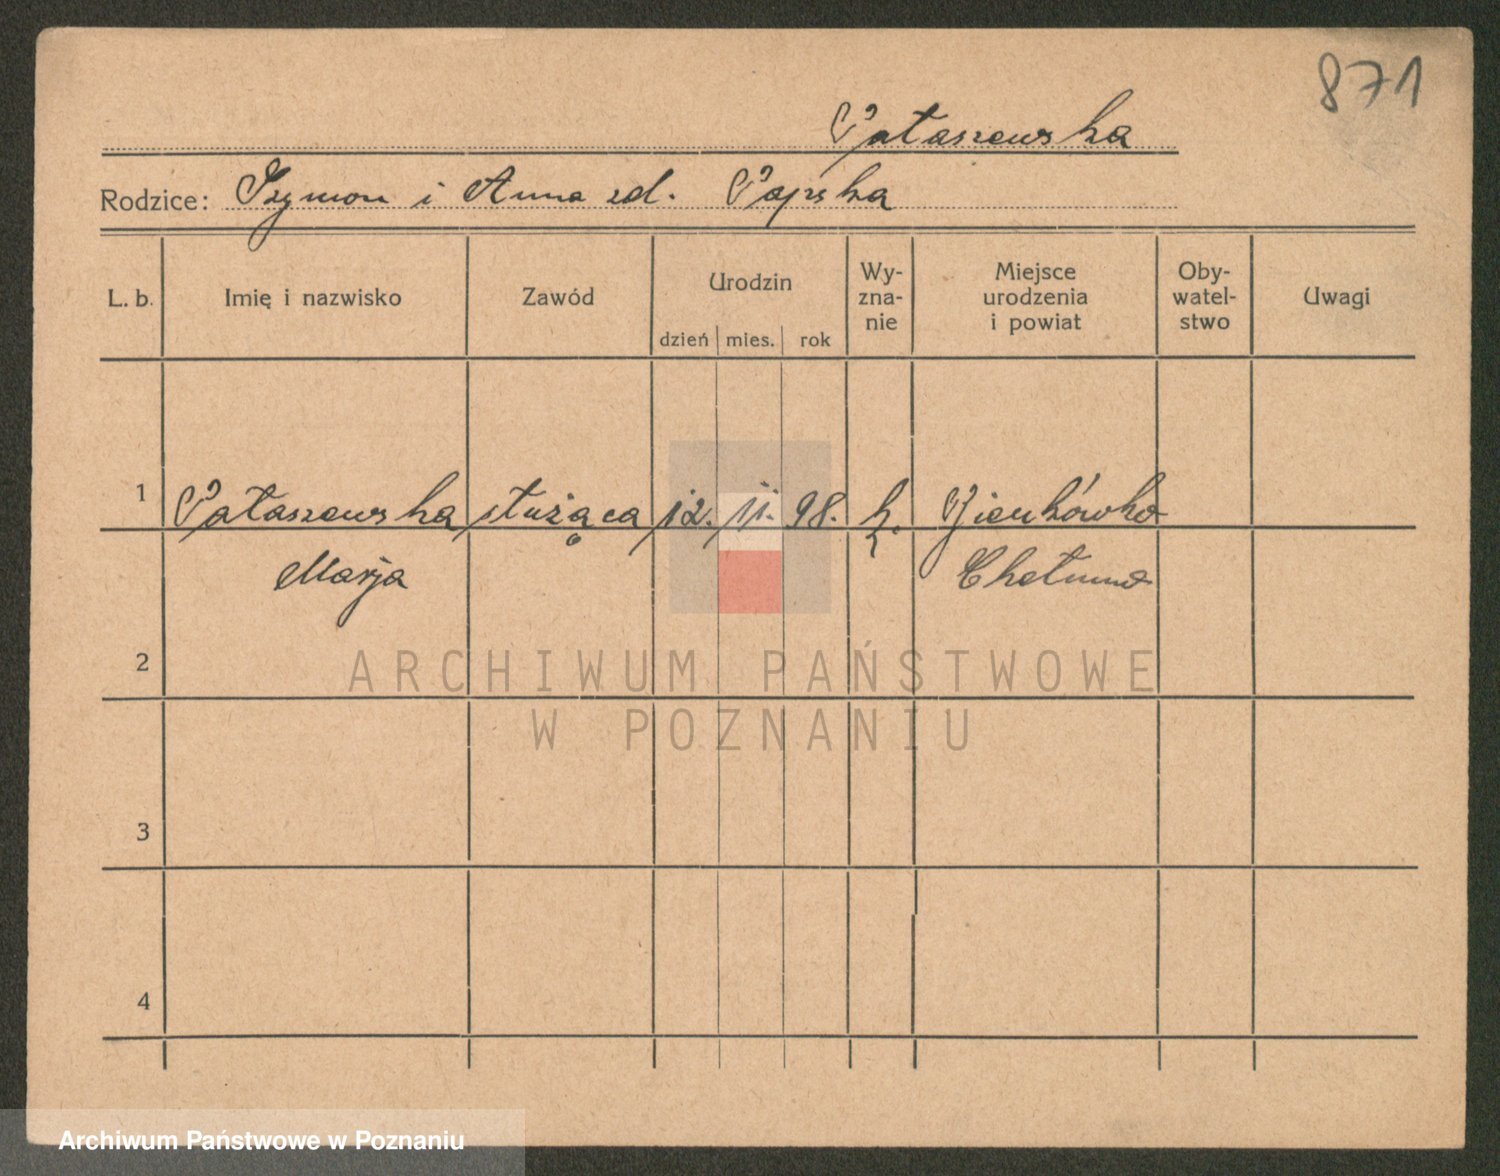 871
Pałaszewska
Rodzice: Szymon i Anna zd. Papska
L. b. Imię i nazwisko Zawód Urodzin dzień mies. rok Wy-zna-nie Miejsce urodzenia i powiat Oby-watel-stwo Uwagi
1 Pałaszewska służąca 12. 11. 98. k. Bieńkówko
Marja Chełmno
2
ARCHIWUM PAŃSTWOWE
W POZNANIU
3
4
Archiwum Państwowe w Poznaniu